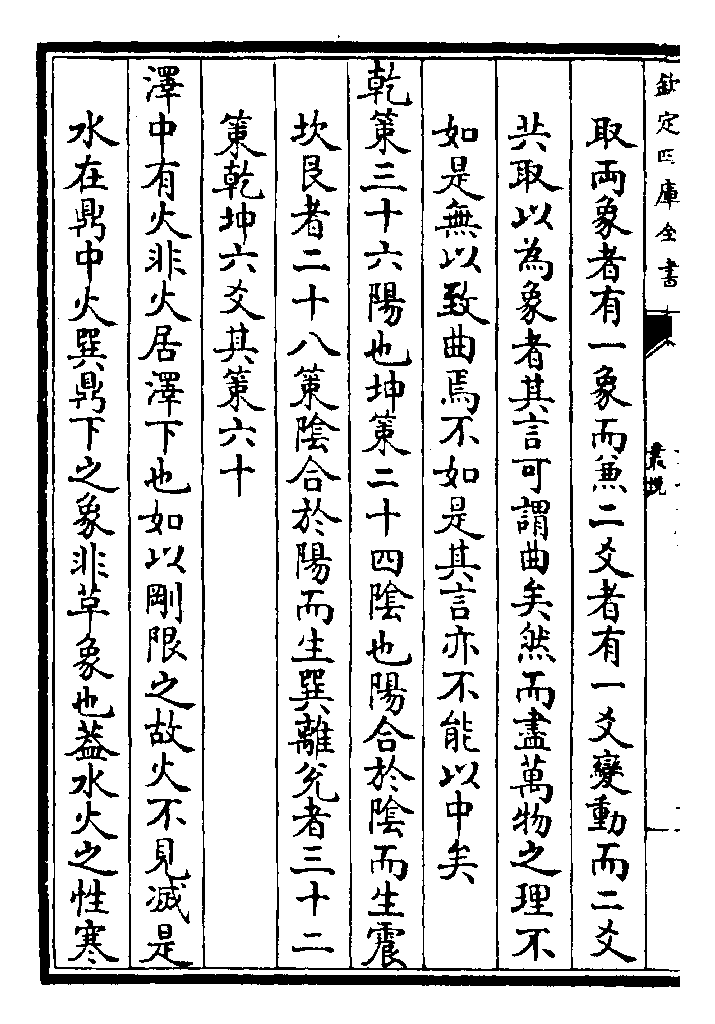 欽定四庫全書
叢説
取兩象者有一象而兼二爻者有一爻變動而二爻
共取以為象者其言可謂曲矣然而盡萬物之理不
如是無以致曲焉不如是其言亦不能以中矣
乾策三十六陽也坤策二十四陰也陽合於陰而生震
坎艮者二十八策陰合於陽而生巽離兊者三十二
策乾坤六爻其策六十
澤中有火非火居澤下也如以剛限之故火不見滅是
水在鼎中火巽鼎下之象非草象也葢水火之性寒